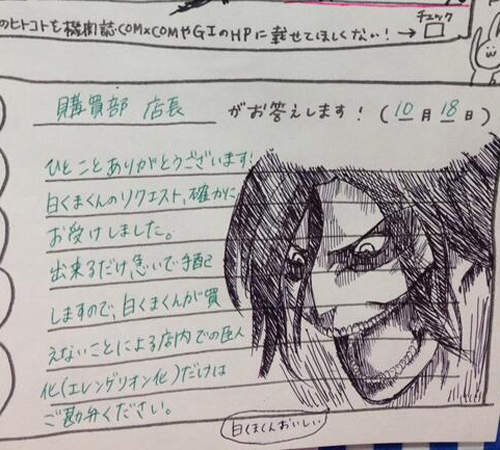 のヒトコトを機関誌COM×COMやGIのHPに載せてほしくない！→
チェック
購買部 店長 がお答えします！（10月18日）
ひとことありがとうございます！
白くまくんのリクエスト、確かに
お受けしました。
出来るだけ急いで手配
しますので、白くまくんが買
えないことによる店内での巨人
化（エレンゲリオン化）だけは
ご勘弁ください。
白くまくんおいしい